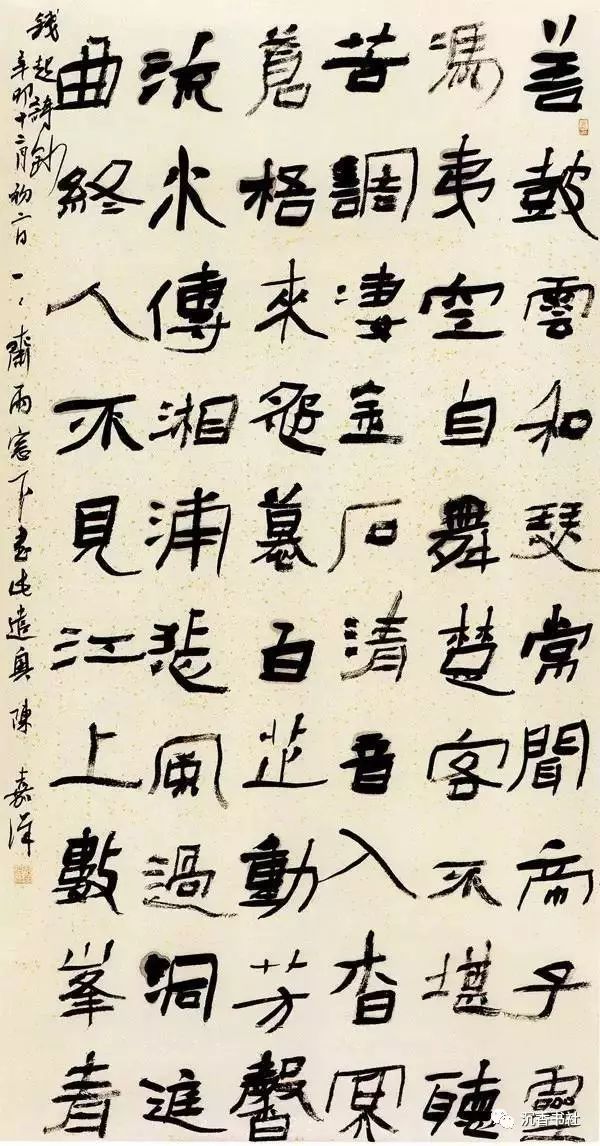 善鼓雲和瑟常聞帝子靈
馮夷空自舞楚客不堪聽
苦調淒金石清音入杳冥
蒼格來怨慕百芷動芳馨
流水傳湘浦悲風過洞庭
曲終人不見江上數峯青
錢起詩鈔
辛卯十二月初二日一一齋雨窗下書此遣興陳嘉
沉香书社